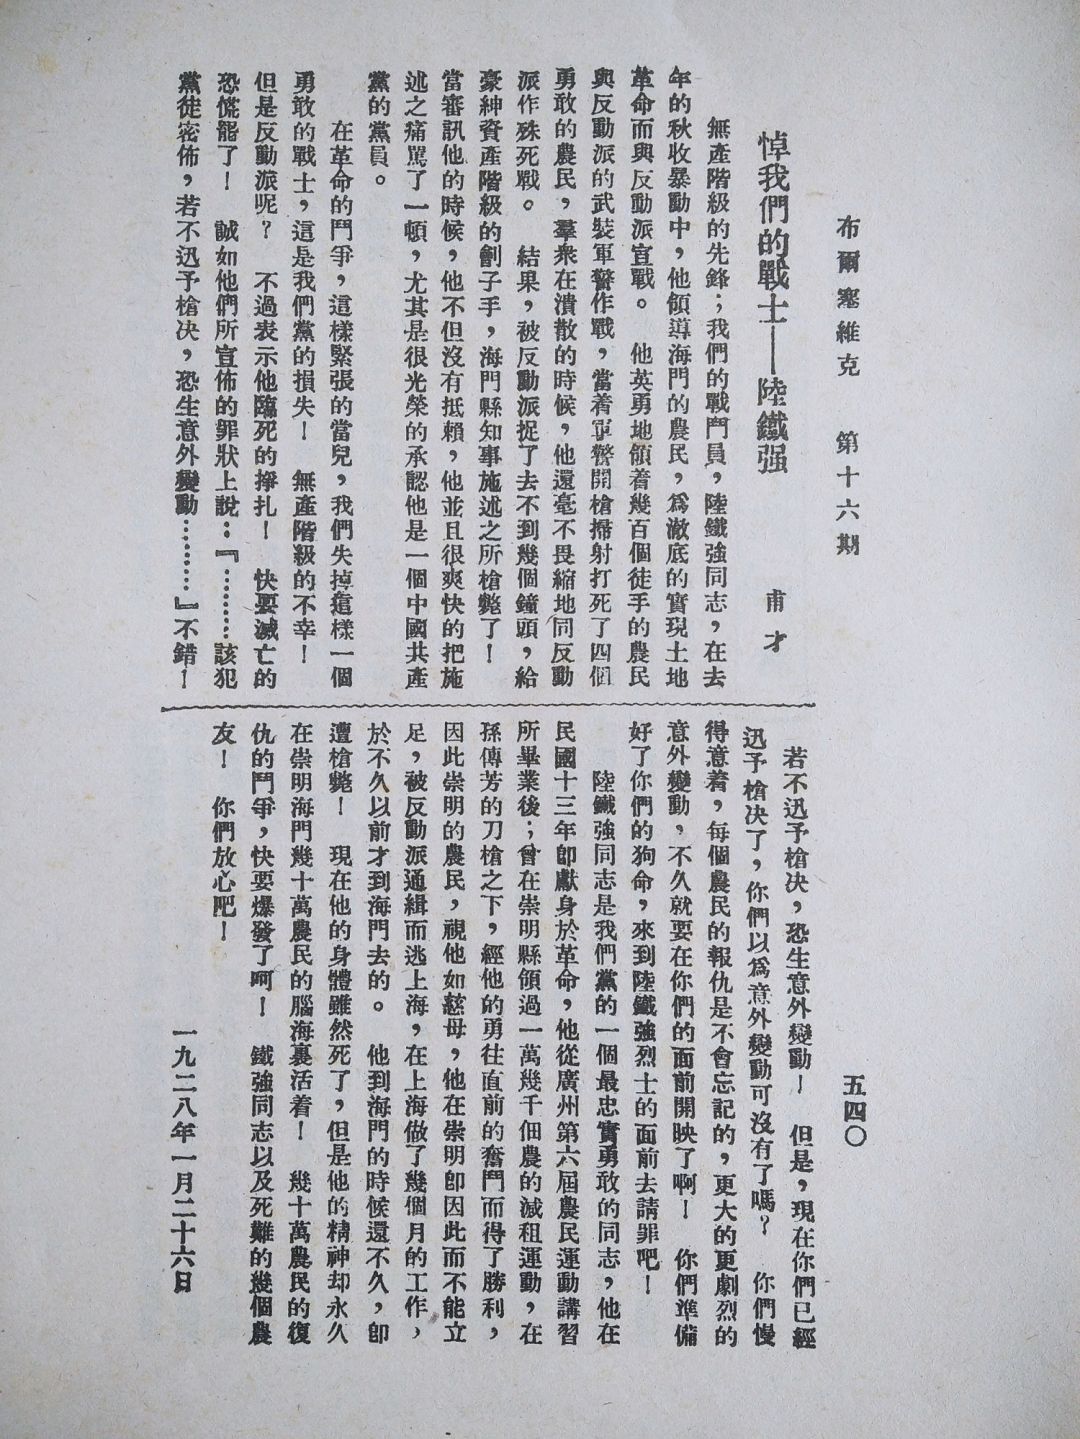 布爾塞維克　第十六期
五四〇
悼我們的戰士——陸鐵强
甫才
無產階級的先鋒；我們的戰鬥員，陸鐵強同志，在去
年的秋收暴動中，他領導海門的農民，爲澈底的實現土地
革命而與反動派宣戰。　他英勇地領着幾百個徒手的農民
與反動派的武裝軍警作戰，當着軍警開槍掃射打死了四個
勇敢的農民，羣衆在潰散的時候，他還毫不畏縮地同反動
派作殊死戰。　結果，被反動派捉了去不到幾個鐘頭，給
豪紳資產階級的劊子手，海門縣知事施述之所槍斃了！
當審訊他的時候，他不但沒有抵賴，他並且很爽快的把施
述之痛駡了一頓，尤其是很光榮的承認他是一個中國共產
黨的黨員。
在革命的鬥爭，這樣緊張的當兒，我們失掉這樣一個
勇敢的戰士，這是我們黨的損失！　無產階級的不幸！
但是反動派呢？　不過表示他臨死的掙扎！　快要滅亡的
恐慌罷了！　誠如他們所宣佈的罪狀上說：『………該犯
黨徒密佈，若不迅予槍决，恐生意外變動………』不錯！
若不迅予槍决，恐生意外變動！　但是，現在你們已經
迅予槍决了，你們以爲意外變動可沒有了嗎？　你們慢
得意着，每個農民的報仇是不會忘記的，更大的更劇烈的
意外變動，不久就要在你們的面前開映了啊！　你們準備
好了你們的狗命，來到陸鐵強烈士的面前去請罪吧！
陸鐵強同志是我們黨的一個最忠實勇敢的同志，他在
民國十三年卽獻身於革命，他從廣州第六屆農民運動講習
所畢業後；曾在崇明縣領過一萬幾千佃農的減租運動，在
孫傳芳的刀槍之下，經他的勇往直前的奮鬥而得了勝利，
因此崇明的農民，視他如慈母，他在崇明卽因此而不能立
足，被反動派通緝而逃上海，在上海做了幾個月的工作，
於不久以前才到海門去的。　他到海門的時候還不久，卽
遭槍斃！　現在他的身體雖然死了，但是他的精神却永久
在崇明海門幾十萬農民的腦海裏活着！　幾十萬農民的復
仇的鬥爭，快要爆發了呵！　鐵強同志以及死難的幾個農
友！　你們放心吧！
一九二八年一月二十六日